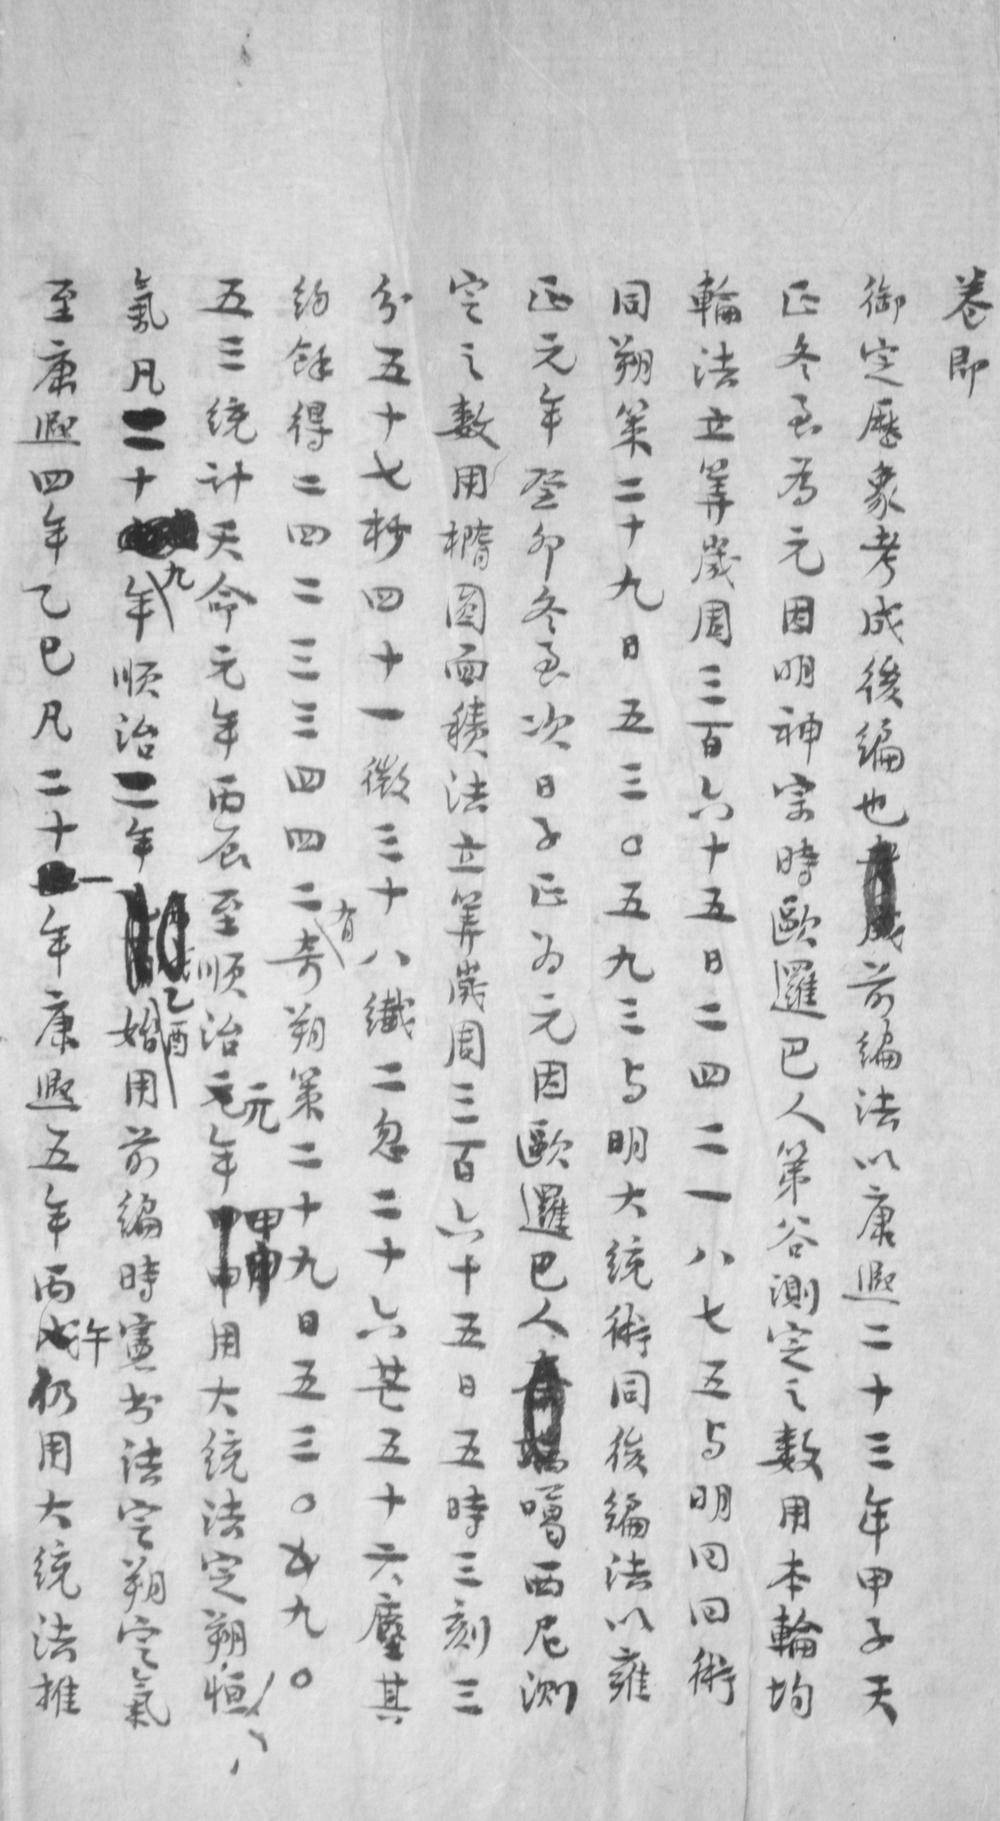 卷即
御定歷象考成後編也前編法以康熙二十三年甲子天
正冬至為元因明神宗時歐邏巴人第谷測定之數用本輪均
輪法立算歲周三百六十五日二四二一八七五与明回回術
同朔策二十九日五三〇五九三与明大統術同後編法以雍
正元年癸卯冬至次日子正为元因歐邏巴人噶西尼測
定之數用橢圓面積法立算歲周三百六十五日五時三刻三
分五十七秒四十一微三十八纖二忽二十六芒五十六塵其
約餘得二四二三三四四二有奇朔策二十九日五三〇五九〇
五三統計天命元年丙辰至順治元年甲申用大統法定朔恒
氣凡二十九年順治二年乙酉始用前編時憲书法定朔定氣
至康熙四年乙巳凡二十一年康熙五年丙午仍用大統法推